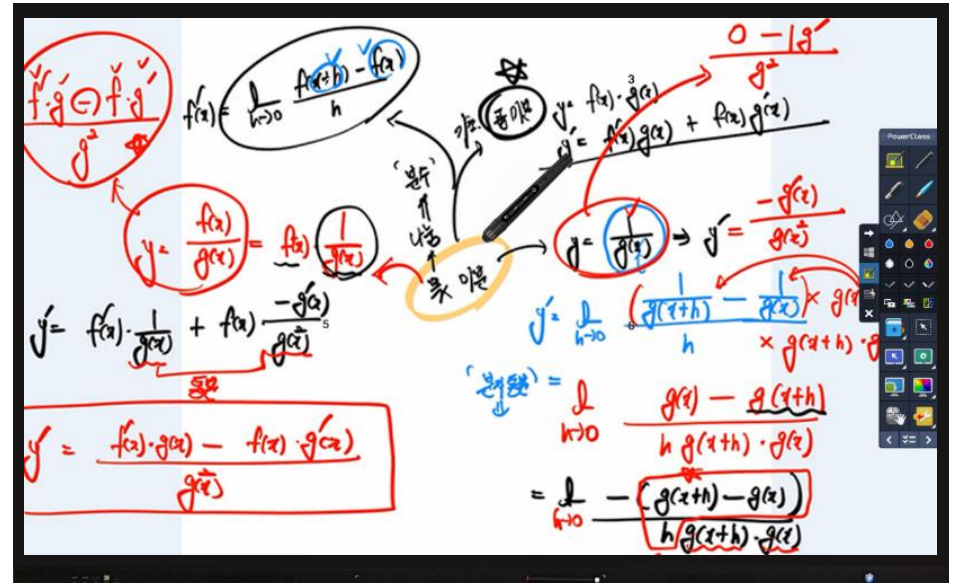 f'·g ⊖ f·g' / g²
f'(x) = l h→0 f(x+h) - f(x) / h
곱미분
y = f(x)·g(x)
y' = f'(x)g(x) + f(x)g'(x)
0 - 1g' / g²
(분수)
⇑
나눗
몫 미분
y = f(x) / g(x) = f(x) 1 / g(x)
y = 1 / g(x) ⇒ y' = -g'(x) / g(x)²
y' = f'(x)·1 / g(x) + f(x)·-g'(x) / g(x)²
통분
y' = f'(x)·g(x) - f(x)·g'(x) / g(x)²
y' = l h→0 (1 / g(x+h) - 1 / g(x)) × g(x / h × g(x+h)·g
(분자통분) = l h→0 g(x) - g(x+h) / h g(x+h)·g(x)
= l h→0 -(g(x+h) - g(x)) / h g(x+h)·g(x)
3
5
6
PowerClass